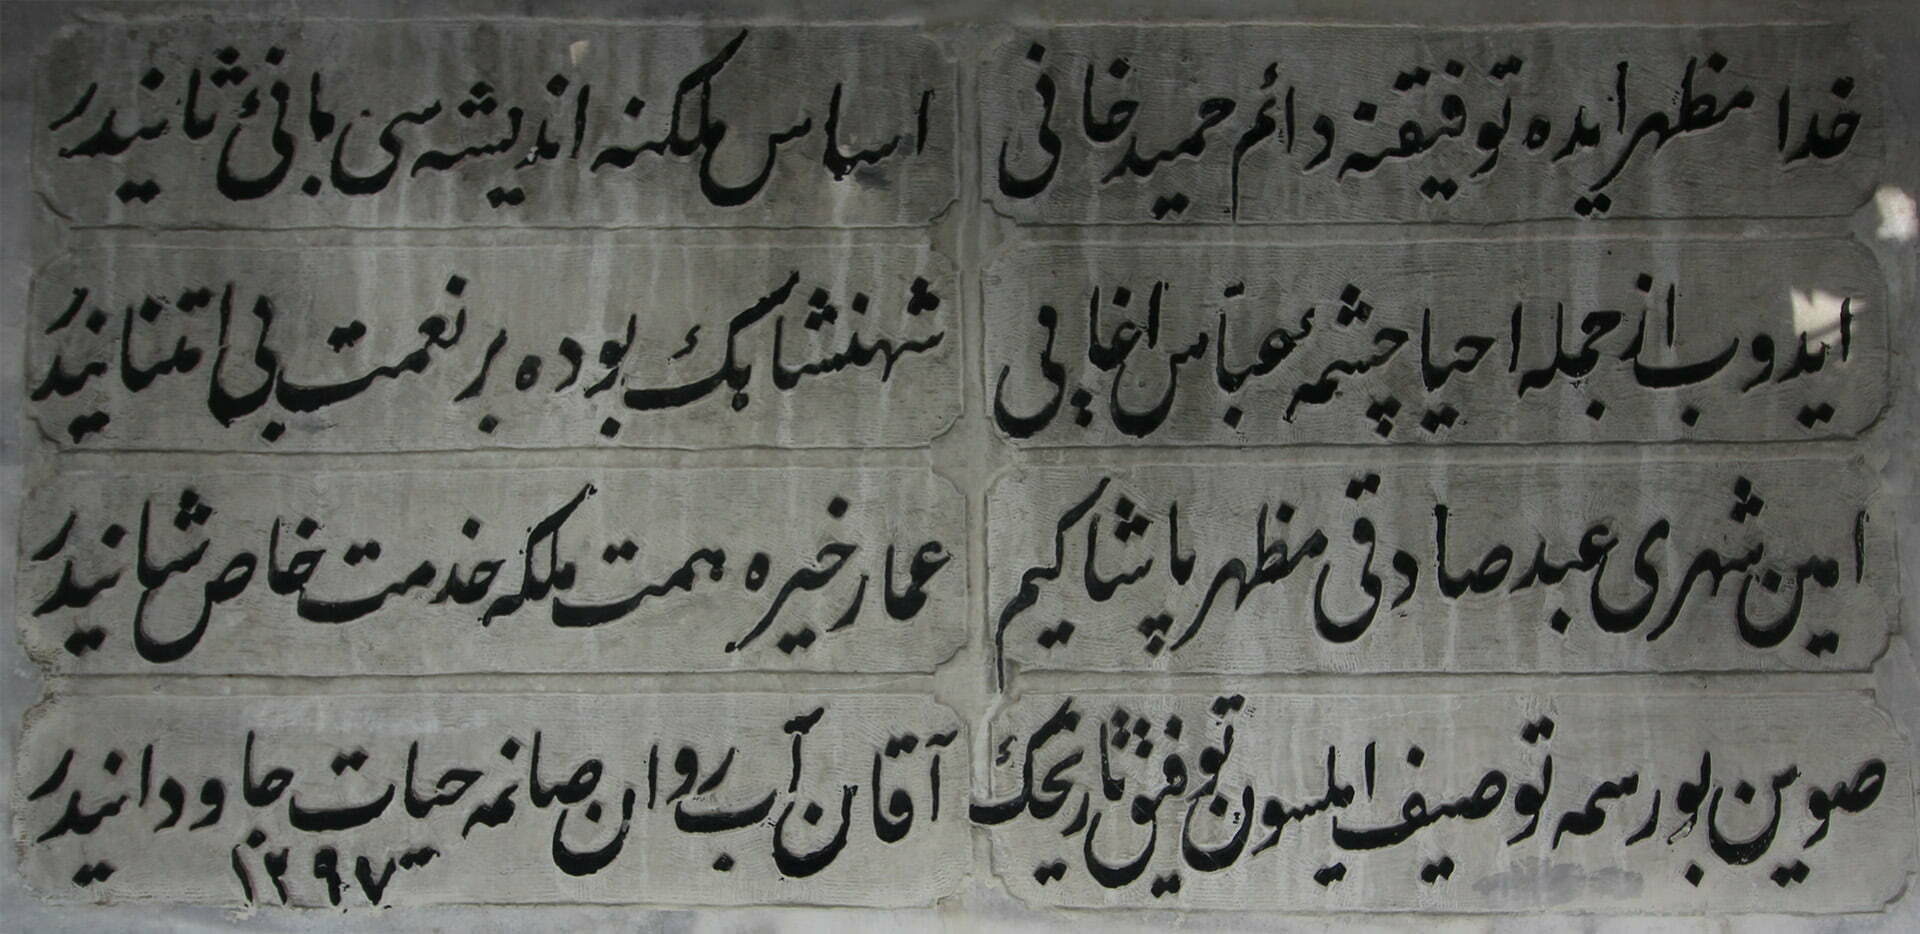 خدا مظهر ایده توفیقنه دائم حمید خانی
اساس ملکنه اندیشه سی بانئ ثانیدر
ایدوب از جمله احیا چشمهٔ عباس اغایی
شهنشاهک بوده بر نعمت بی امتنانیدر
امین شهری عبد صادقی مظهر پاشا کیم
عمار خیره همت ملکه خدمت خاص شانیدر
صوین بو رسمه توصیف ایلسون توفیق تاریخک
آقان آب روان صانمه حیات جاودانیدر
١٢٩٧